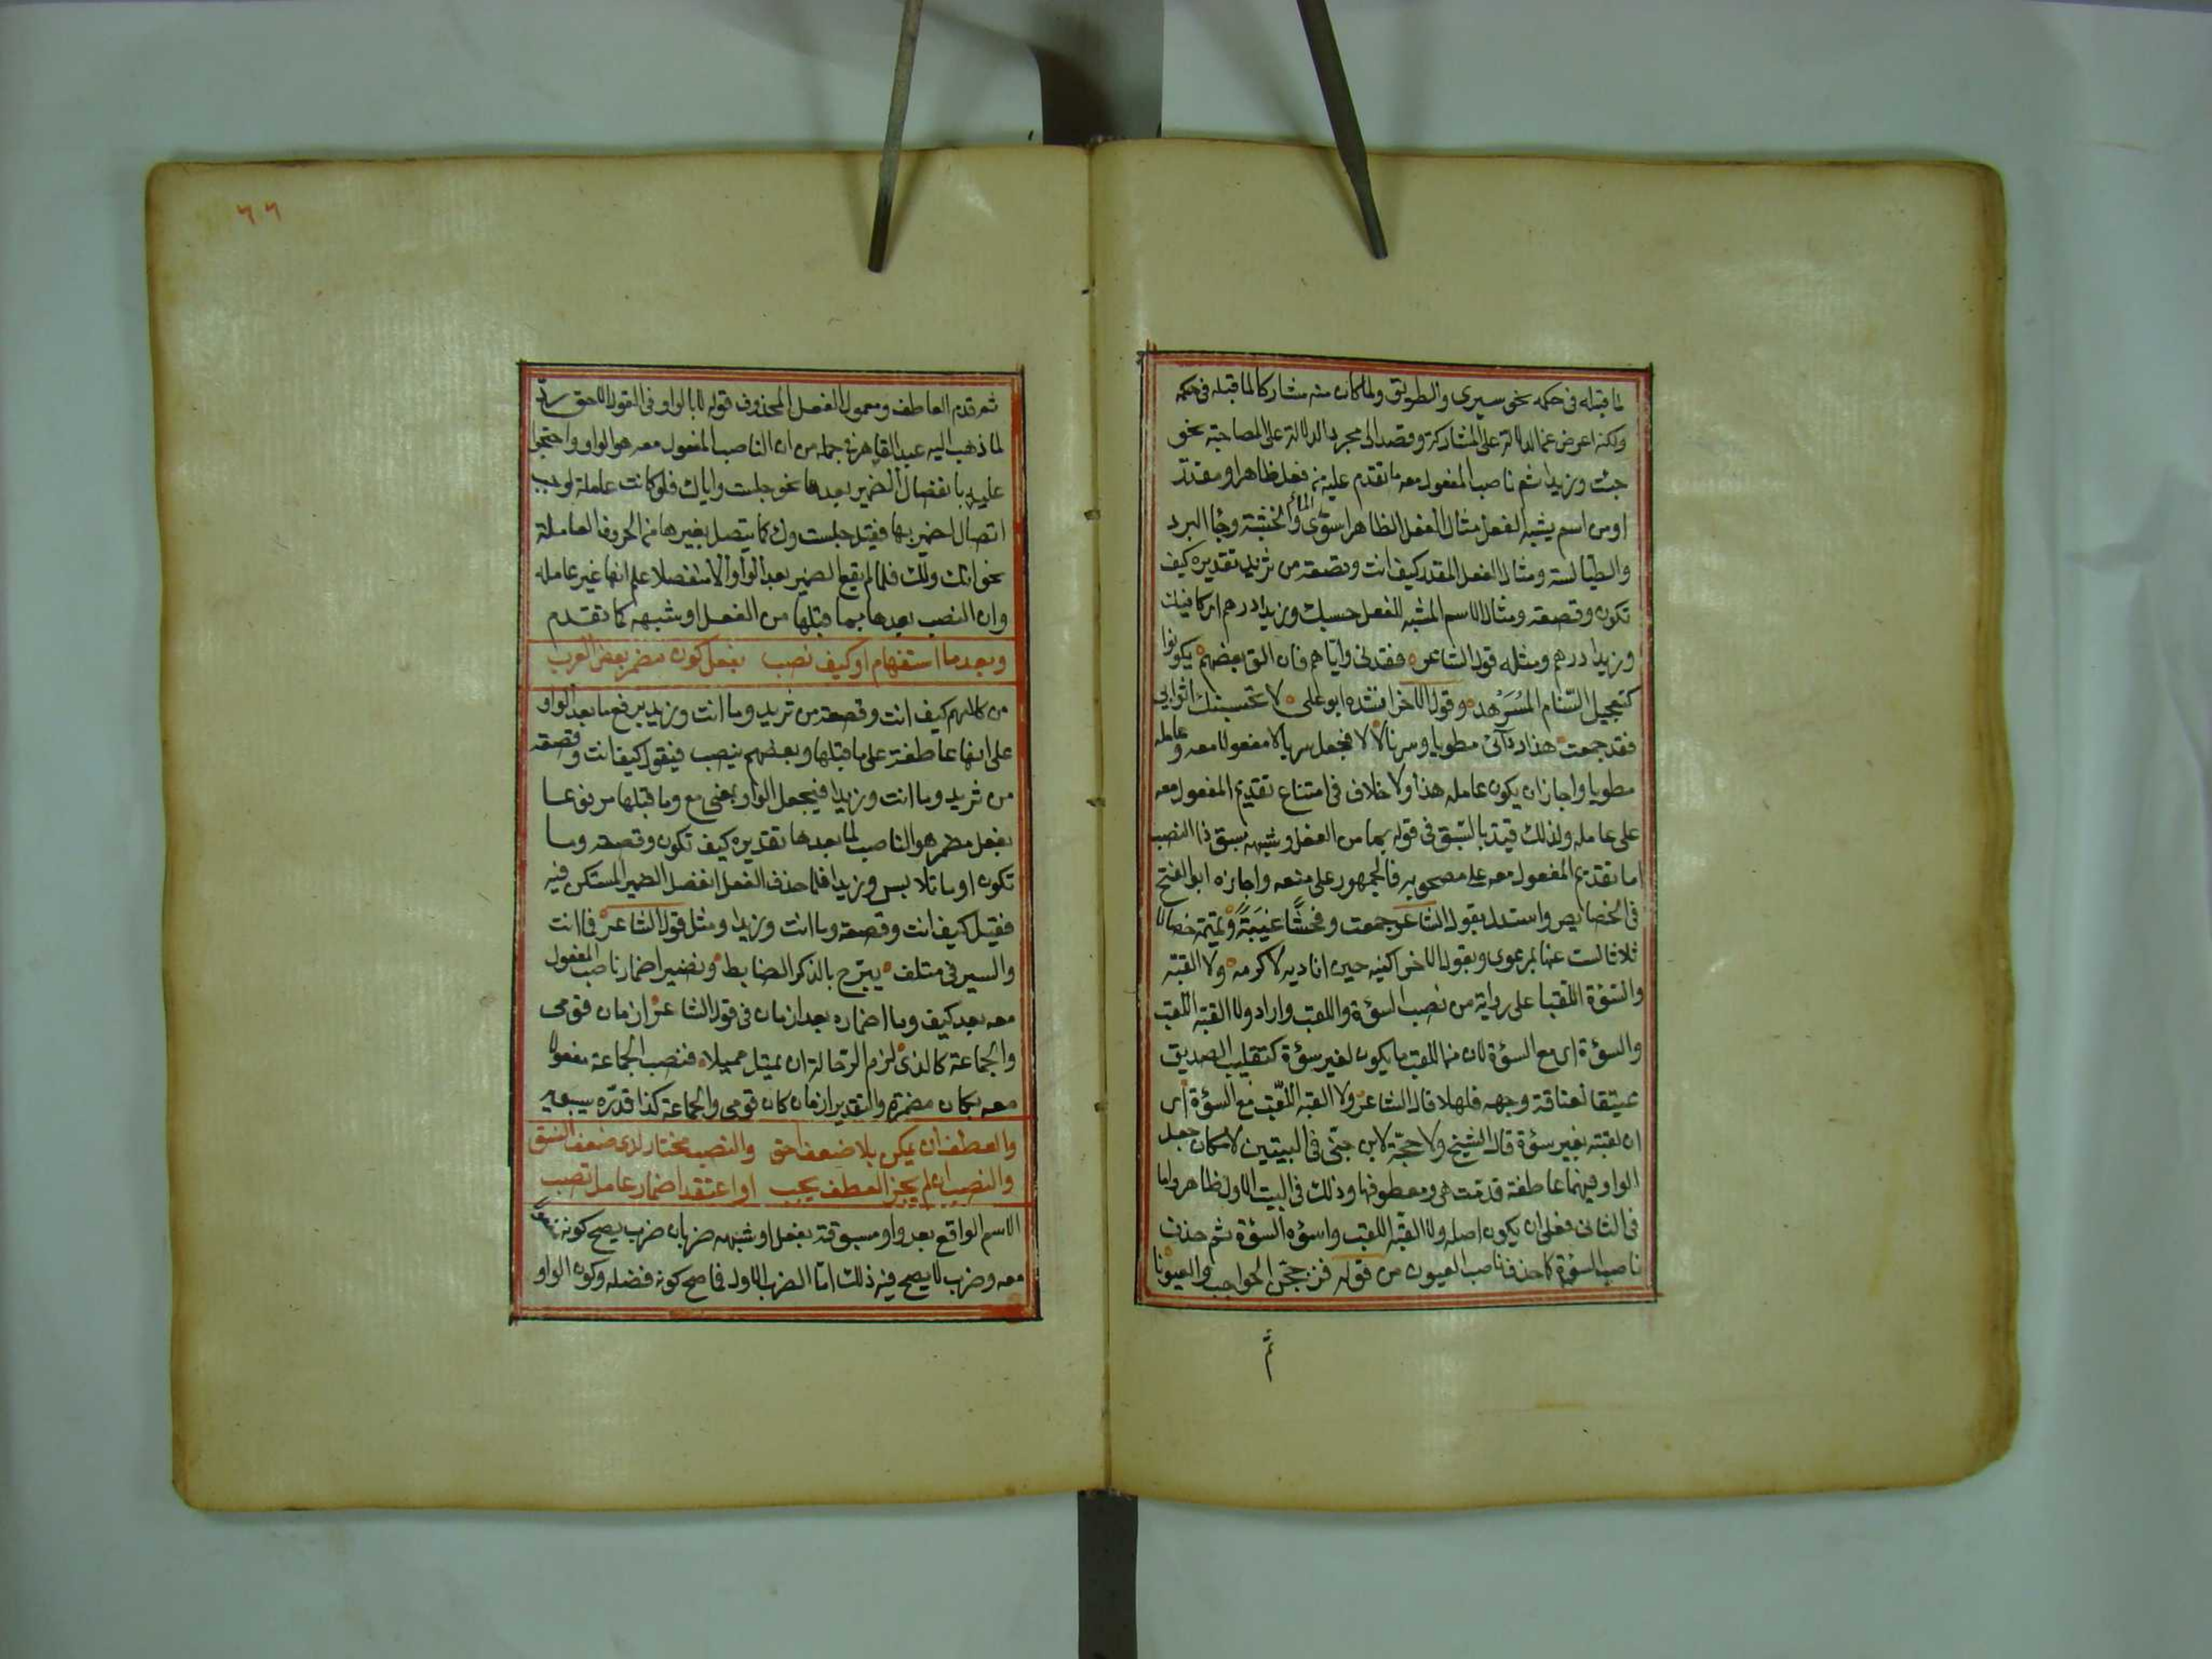 لما قبله في حكمه نحو سيرى والطريق ولما كان منه مشاركا لما قبله في حكمه
ولكنه اعرض عن الدلالة على المشاركة وقصد الى مجرد الدلالة على المصاحبة نحو
جئت وزيدا ثم ناصب المفعول معه ما تقدم عليه من فعل ظاهر او مقدر
او من اسم يشبه الفعل مثال الفعل الظاهر استوى الماء والخشبة وجاء البرد
والطيالسة ومثال الفعل المقدر كيف انت وقصعة من ثريد تقديره كيف
تكون وقصعة ومثال الاسم المشبه للفعل حسبك وزيدا درهم اى كافيك
وزيدا درهم ومثله قول الشاعر فقدنى واياهم فان الق بعضهم يكونوا
كتعجيل السنام المسرهد وقول الاخر انشده ابو على لا تحبسنك اثوابى
فقد جمعت هذا ردآئى مطويا وسربالا فجعل سربالا مفعولا معه وعامله
مطويا واجاز ان يكون عامله هذا ولا خلاف فى امتناع تقديم المفعول معه
على عامله ولذلك قيد بالسبق فى قوله بما من الفعل وشبهه سبق ذا النصب
اما تقديم المفعول معه على مصحوبه فالجمهور على منعه واجازه ابو الفتح
فى الخصايص واستدل بقول الشاعر جمعت وفحشا غيبة ونميمة خصالا
ثلاثا لست عنها بمرعوى وبقول الاخر اكنيه حين اناديه لاكرمه ولا القبه
والسؤة اللقبا على رواية من نصب السؤة واللقب واراد ولا القبه اللقب
والسؤة اى مع السؤة لان من اللقب ما يكون لغير سؤة كتلقيب الصديق
عتيقا لعتاقة وجهه فلهذا قال الشاعر ولا القبه اللقب مع السؤة اى
ان لقبته بغير سؤة قال الشيخ ولا حجة لابن جنى فى البيتين لامكان جعل
الواو فيهما عاطفة قدمت هى ومعطوفها وذلك فى البيت الاول ظاهر واما
فى الثانى فعلى ان يكون اصله ولا القبه اللقب واسؤه السؤة ثم حذف
ناصب السؤة كما حذف ناصب العيون من قوله فزججن الحواجب والعيونا
ثم
٦٦
ثم قدم العاطف ومعمول الفعل المحذوف قوله لا بالواو فى القول الاحق رد
لما ذهب اليه عبد القاهر فى جمله من ان الناصب المفعول معه هو الواو واحتجوا
عليه بانفصال الضمير بعدها نحو جلست واياك فلو كانت عاملة لوجب
اتصال الضمير بها فقيل جلست وك كما يتصل بغيرها من الحروف العاملة
نحو انك ولك فلما لم يقع الضمير بعد الواو الا منفصلا علم انها غير عامله
وان النصب بعدها بما قبلها من الفعل او شبهه كما تقدم
وبعد ما استفهام او كيف نصب بفعل كون مضمر بعض العرب
من كلامهم كيف انت وقصعة من ثريد وما انت وزيد برفع ما بعد الواو
على انها عاطفة على ما قبلها وبعضهم ينصب فيقول كيف انت وقصعة
من ثريد وما انت وزيدا فيجعل الواو بمعنى مع وما قبلها مرفوعا
بفعل مضمر هو الناصب لما بعدها تقديره كيف تكون وقصعة وما
تكون او ما تلابس وزيدا فلما حذف الفعل انفصل الضمير المستكن فيه
فقيل كيف انت وقصعة وما انت وزيدا ومثل قول الشاعر فما انت
والسير فى متلف يبرح بالذكر الضابط ونضير اضمار ناصب المفعول
معه بعد كيف وما اضماره بعد ازمان فى قول الشاعر ازمان قومى
والجماعة كالذى لزم الرحالة ان تميل مميلا فنصب الجماعة مفعولا
معه بكان مضمرة والتقدير ازمان كان قومى والجماعة كذا قدره سيبويه
والعطف ان يمكن بلا ضعف احق والنصب مختار لدى ضعف النسق
والنصب ان لم يجز العطف يجب او اعتقد اضمار عامل تصب
الاسم الواقع بعد واو مسبوقة بفعل او شبهه ضربان ضرب يصح كونه مفعولا
معه وضرب لا يصح فيه ذلك اما الضرب الاول فما صح كونه فضله وكون الواو